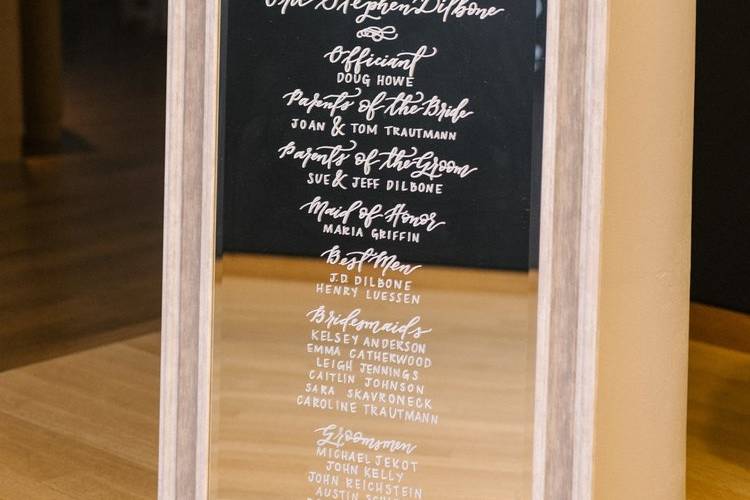 Stephen Dilbone
Officiant
DOUG HOWE
Parents of the Bride
JOAN & TOM TRAUTMANN
Parents of the Groom
SUE & JEFF DILBONE
Maid of Honor
MARIA GRIFFIN
Best Men
J.D. DILBONE
HENRY LUESSEN
Bridesmaids
KELSEY ANDERSON
EMMA CATHERWOOD
LEIGH JENNINGS
CAITLIN JOHNSON
SARA SKAVRONECK
CAROLINE TRAUTMANN
Groomsmen
MICHAEL JEKOT
JOHN KELLY
JOHN REICHSTEIN
AUSTIN